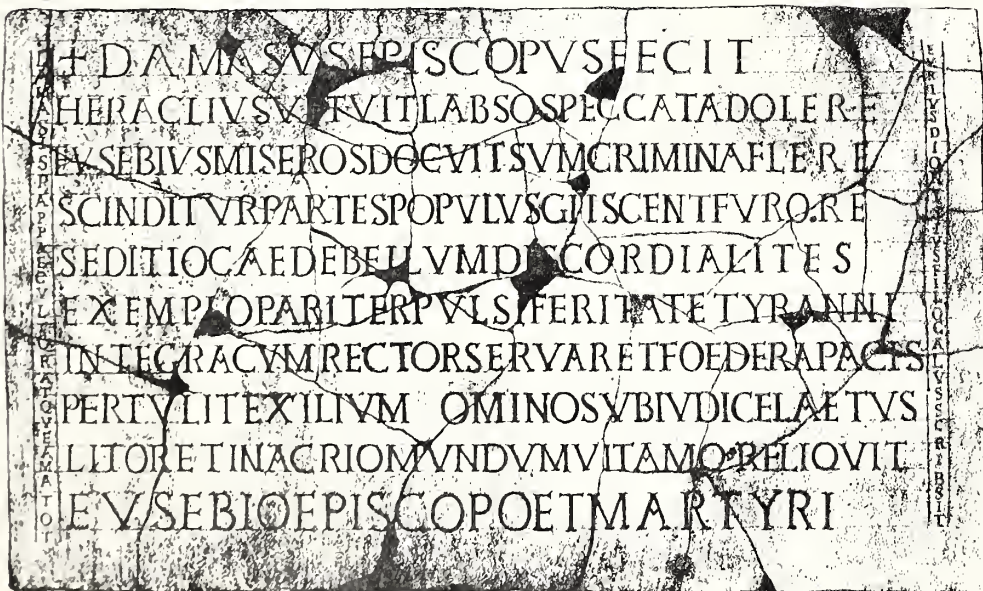 DAMASISPAPPAECVLTORATQVEAMATOR
+ DAMASVSEPISCOPVSFECIT
HERACLIVSVETVITLABSOSPECCATADOLERE
EVSEBIVSMISEROSDOCVITSVMCRIMINAFLERE
SCINDITVRPARTESPOPVLVSGLISCENTFVRORE
SEDITIOCAEDEBELLVMDISCORDIALITES
EXEMPLOPARITERPVLSIFERITATETYRANNI
INTEGRACVMRECTORSERVARETFOEDERAPACIS
PERTVLITEXILIVM OMINOSVBIVDICELAETVS
LITORETINACRIOMVNDVMVITAMQ·RELIQVIT
EVSEBIOEPISCOPOETMARTYRI
FVRIVSDIONYSIVSFILOCALVSSCRIBSIT